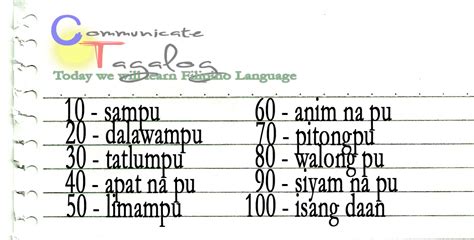 Communicate
Tagalog
Today we will learn Filipino Language
10 - sampu
20 - dalawampu
30 - tatlumpu
40 - apat na pu
50 - limampu
60 - anim na pu
70 - pitongpu
80 - walong pu
90 - siyam na pu
100 - isang daan